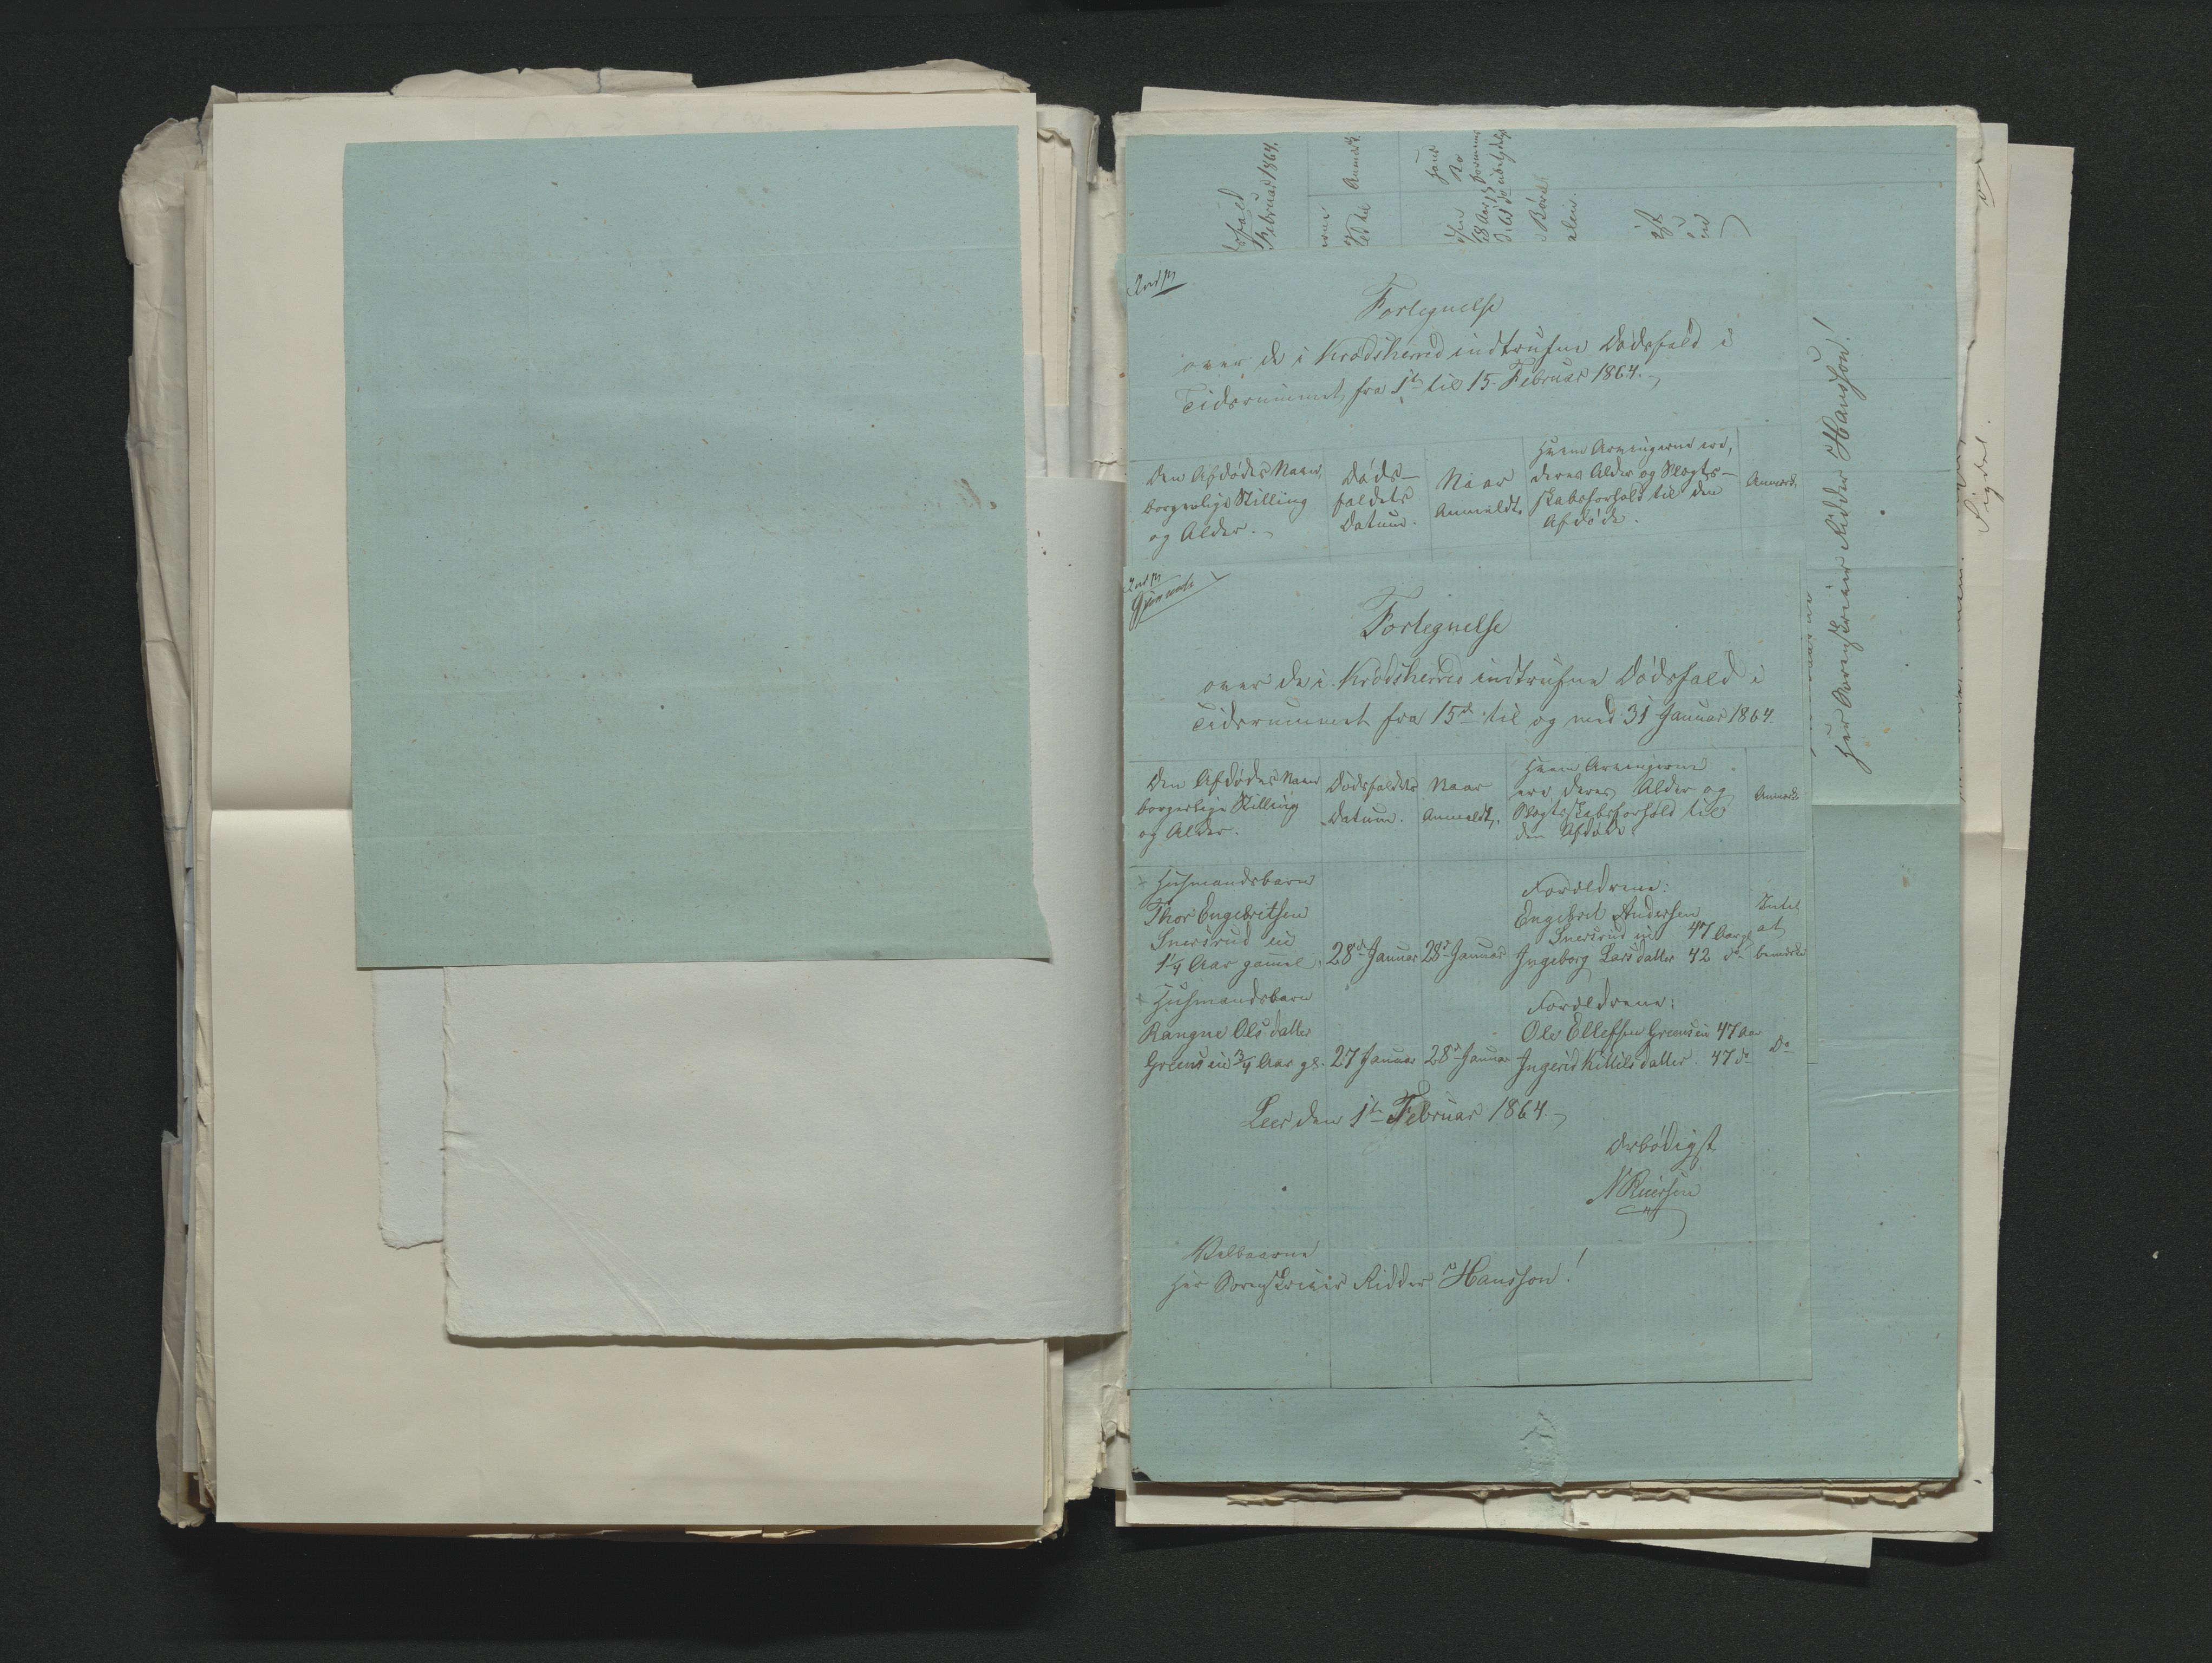 dsfald
Februar 1864.
Anmærk.
Her Sorenskriver Ridder Hansson!
Sigdal.
Indf
Fortegnelse
over de i Krødsherred indtrufne Dødsfald i
Tidsrummet fra 1te til 15. Februar 1864.
Den Afdødes Navn,
borgerlige Stilling
og Alder.
Døds-
faldets
Datum.
Naar
Anmeldt.
Hvem Arvingerne ere,
deres Alder og Slægts-
skabsforhold til den
Afdøde.
Anmærk.
Indf
Fortegnelse
over de i Krødsherred indtrufne Dødsfald i
Tidsrummet fra 15de til og med 31 Januar 1864.
Den Afdødes Navn
borgerlige Stilling
og Alder.
Dødsfaldets
Datum.
Naar
Anmeldt.
Hvem Arvingerne
ere deres Alder og
Slægtskabsforhold til
den Afdøde
Anmærk.
Husmandsbarn
Thor Engebretsen
Snersrud eie
1 1/4 Aar gammel.
28de Januar
28de Januar
Forældrene:
Engebret Andersen
Snersrud eie 47 Aar
Ingeborg Larsdatter 42 do
Intet
at
bemærke
Husmandsbarn
Rangne Olsdatter
Greens eie 3/4 Aar gl.
27 Januar
28de Januar
Forældrene:
Ole Ellefsen Greenseie 47 Aar
Ingerid Kittilsdatter. 47 do
Do
Leer den 1te Februar 1864.
Ærbødigst
Velbaarne
Her Sorenskriver Ridder Hansson!